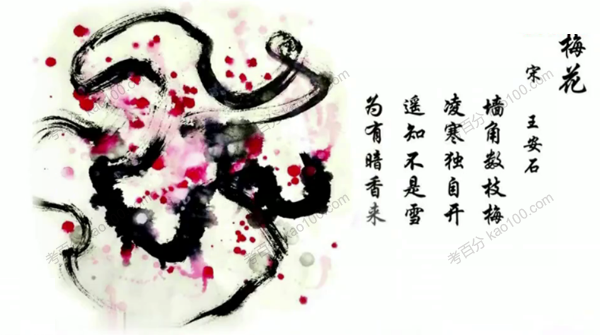 梅花
宋 王安石
墙角数枝梅
凌寒独自开
遥知不是雪
为有暗香来
考百分 kao100.com
考百分 kao100.com
考百分 kao100.com
考百分 kao100.com
考百分 kao100.com
考百分 kao100.com